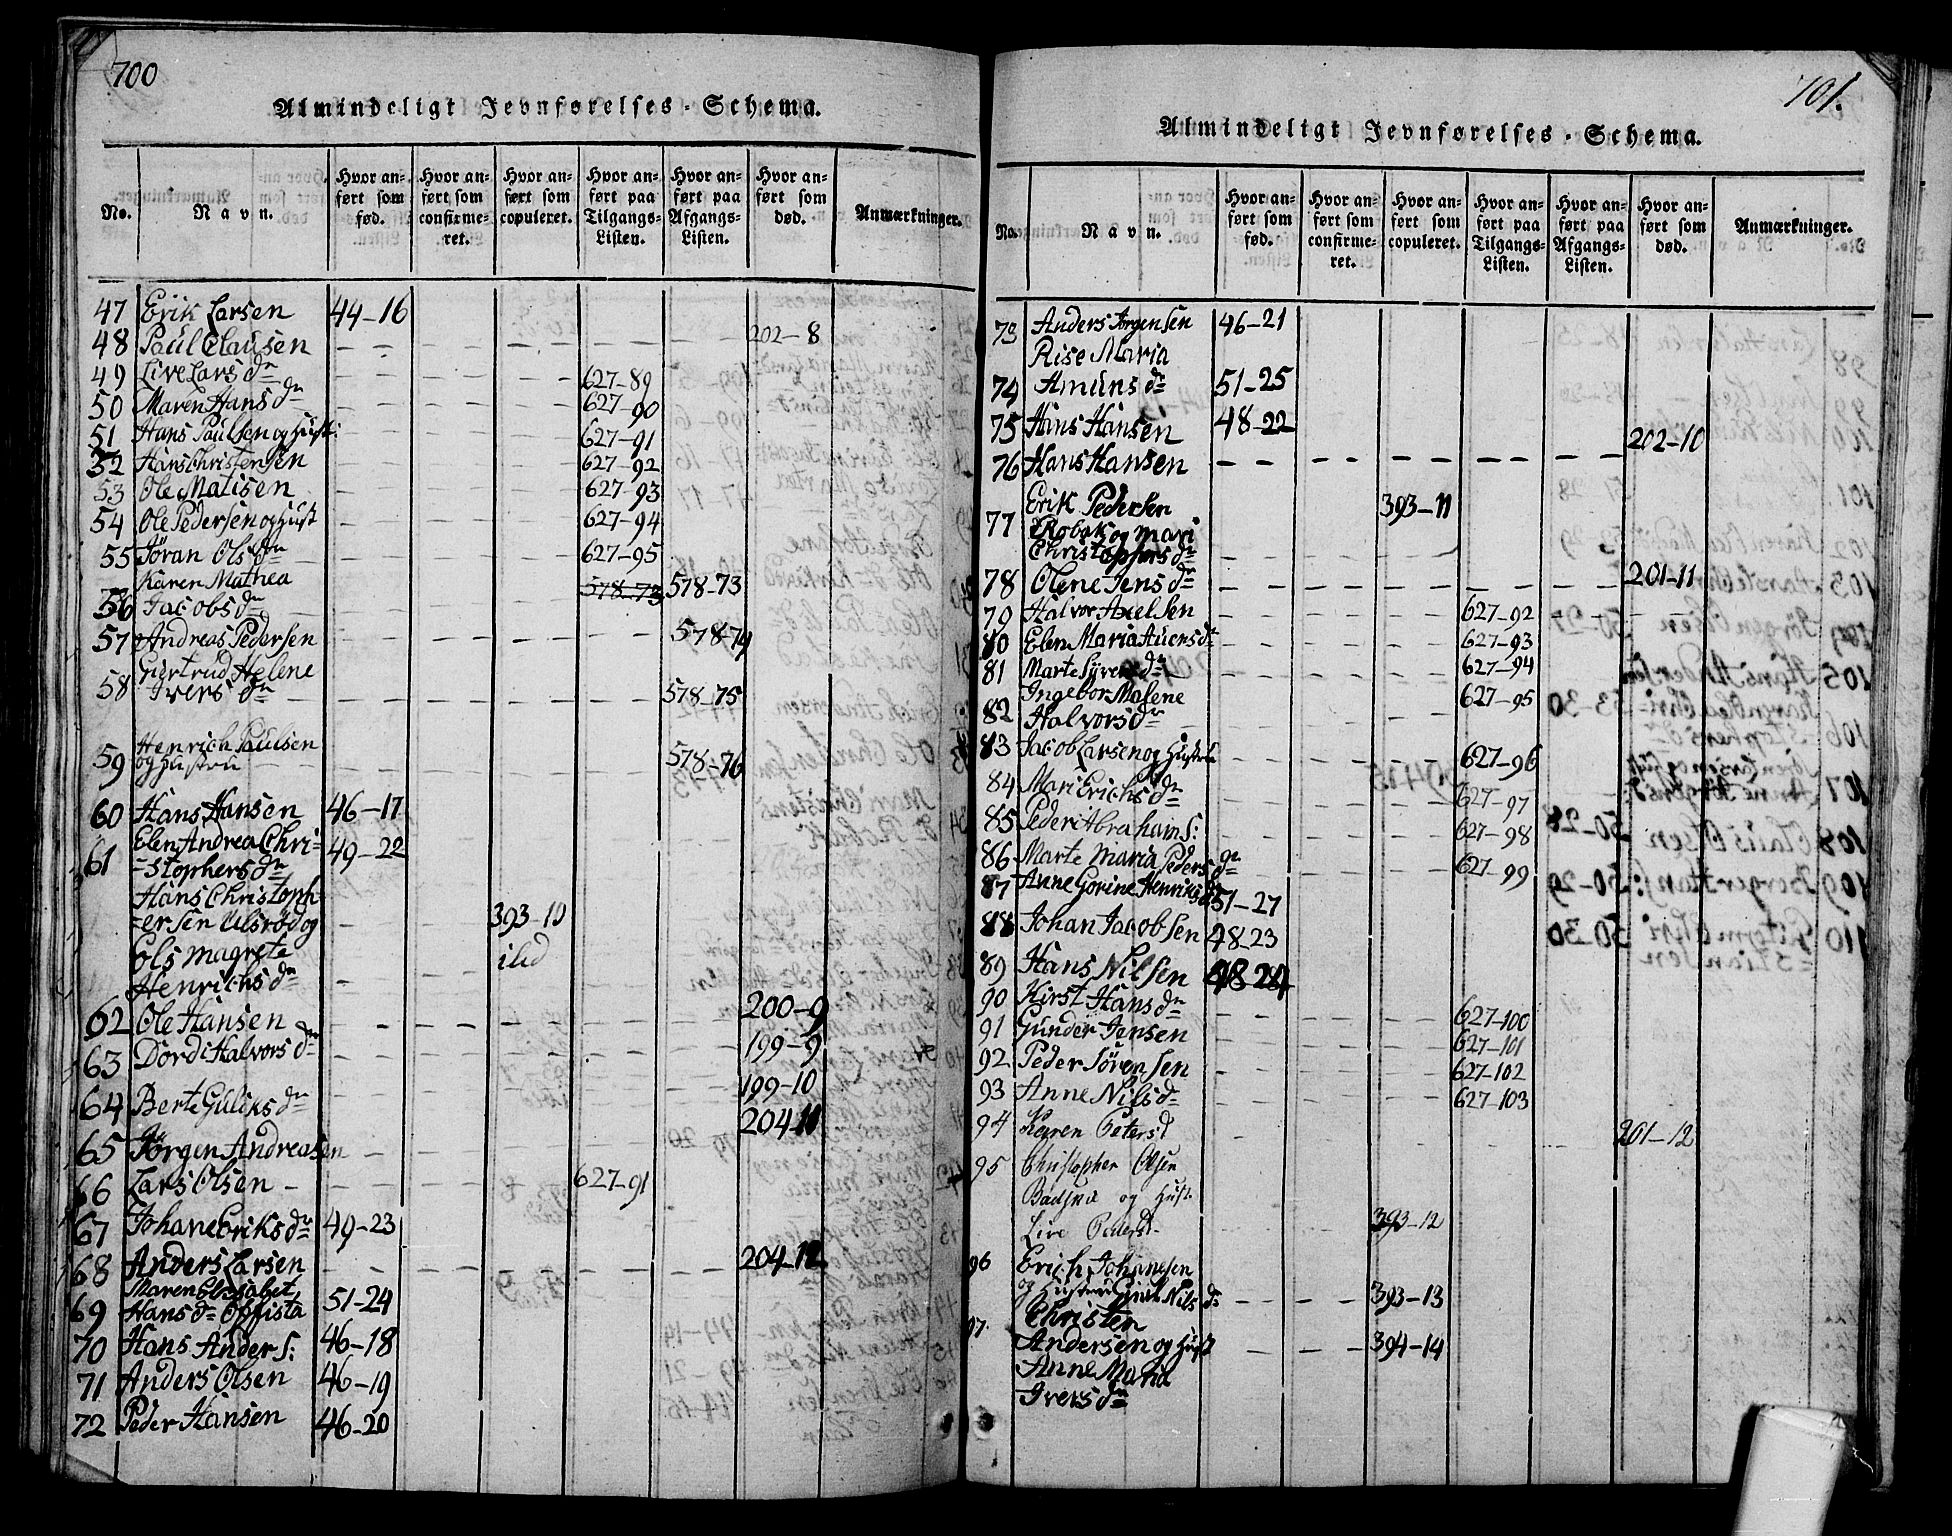 700
Almindeligt Jevnførelses-Schema.
No. Navn. Hvor anført som fød. Hvor anført som confirmeret. Hvor anført som copuleret. Hvor anført paa Tilgangs-Listen. Hvor anført paa Afgangs-Listen. Hvor anført som død. Anmærkninger.
47 Erik Larsen 44-16
48 Paul Clausen 202-8
49 Live Lars dr 627-89
50 Maren Hans dr 627-90
51 Hans Paulsen og Hust: 627-91
52 Hans Christensen 627-92
53 Ole Matisen 627-93
54 Ole Pedersen og Hust 627-94
55 Jöran Ols dr 627-95
Karen Mathea
56 Jacobs dr 578-73 578-73
57 Andreas Pedersen 578-74
Gurtrud Helene
58 Ivers dr 578-75
Henrich Paulsen
59 og Hustru 578-76
60 Hans Hansen 46-17
Elen Andrea Chri-
61 -stophers dr 49-22
Hans Christoph-
-ersen Ulsrød og 393-10
Ols Magrete
Henrichs dr
62 Ole Hansen 200-9
63 Dordi Halvors dr 199-9
64 Berte Guliks dr 199-10
65 Jörgen Andreasen 204-11
66 Lars Olsen 627-91
67 Johane Eriks dr 49-23
68 Anders Larsen 204-12
Maren Elisabet
69 Hans dr Opsista 51-24
70 Hans Anders: 46-18
71 Anders Olsen 46-19
72 Peder Hansen 46-20
701.
Almindeligt Jevnførelses-Schema.
No. Navn. Hvor anført som fød. Hvor anført som confirmeret. Hvor anført som copuleret. Hvor anført paa Tilgangs-Listen. Hvor anført paa Afgangs-Listen. Hvor anført som død. Anmærkninger.
73 Anders Jörgensen 46-21
Rise Maria
74 Amuns dr 51-25
75 Hans Hansen 48-22
76 Hans Hansen 202-10
Erik Pedersen 393-11
77 Robak og Mari
Christophers dr
78 Olene Jens dr 201-11
79 Halvor Axelsen 627-92
80 Elen Maria Auens dr 627-93
81 Marte Syvers dr 627-94
Ingebor Malene 627-95
82 Halvors dr
83 Jacob Larsen og Hustru 627-96
84 Mari Erichs dr 627-97
85 Peder Abrahams: 627-98
86 Marte Maria Peders dr 627-99
87 Anne Gorine Henriks dr 51-27
88 Johan Jacobsen 48-23
89 Hans Nilsen 48-24
90 Kirst Hans dr 627-100
91 Gunder Jensen 627-101
92 Peder Sörensen 627-102
93 Anne Nils dr 627-103
94 Karen Petersd 201-12
95 Christopher Olsen
og Hust
Live Pedersd 393-12
96 Erich Johannesen
og Hustru Nils dr 393-13
97. Christen
Andersen og Hust 394-14
Anne Maria
Ivers dr